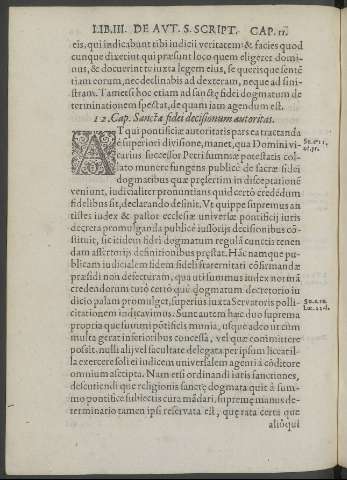 LIB.III. DE AVT. S. SCRIPT. CAP. 11.
eis, qui indicabunt tibi iudicii veritatem: & facies quod
cunque dixerint qui præsunt loco quem elegerit domi
nus, & docuerint te iuxta legem eius, se querisque sentē
tiam eorum, nec declinabis ad dexteram, neque ad sini-
stram. Tametsi hoc etiam ad sanctę fidei dogmatum de
terminationem spectat, de quam iam agendum est.
12. Cap. Sanctæ fidei decisionum autoritas.
AT qui pontificiæ autoritatis pars ea tractanda
è superiori divisione, manet, qua Domini vi-
carius successor Petri summæ potestatis col-
lato munere fungens publicè de sacræ fidei
dogmatibus quæ præsertim in disceptationē
veniunt, iudicialiter pronuntians quid certò credēdum
fidelibus sit, declarando definit. Ut quippe supremus an
tistes iudex & pastor ecclesiæ universæ pontificij iuris
decreta promulganda publicè iustioris decisionibus cō-
stituit, sic itidem fidei dogmatum regulā cunctis tenen
dam assertionis definitionibus præstat. Hāc namque pu-
blicam iudicialem fidem fidelis fraternitati cōfirmandæ
præsidi non defecturam, qua ut summus iudex normā
credendorum tutò certò què dogmatum decretorio iu
dicio palam promulget, superius iuxta Servatoris polli-
citationem indicavimus. Sunt autem hæc duo suprema
propria que summi pontificis munia, usque adeo ut cùm
multa gerat inferioribus concessa, vel quæ committere
possit, nulli alij vel facultate delegata per ipsum liceat il-
la exercere soli et iudicem universalem agenti à cōditore
omnium ascripta. Nam etsi ordinandi iuris sanctiones,
discutiendi que religionis sanctę dogmata quit à sum-
mo pontifice subiectis cura mādari, supremę manus de-
terminatio tamen ipsi reservata est, quę rata certa que
aliòqui